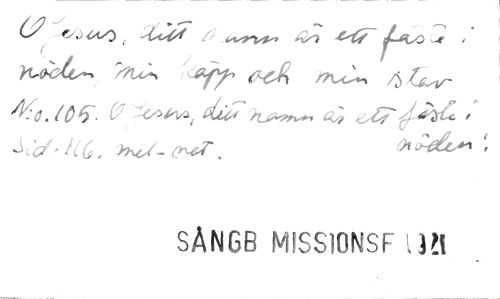 O Jesus, ditt namn är ett fäste i
nöden, min käpp och min stav
N:o. 105. O Jesus, ditt namn är ett fäste i
nöden!
Sid. 116. mel-not.
SÅNGB MISSIONSF 1921